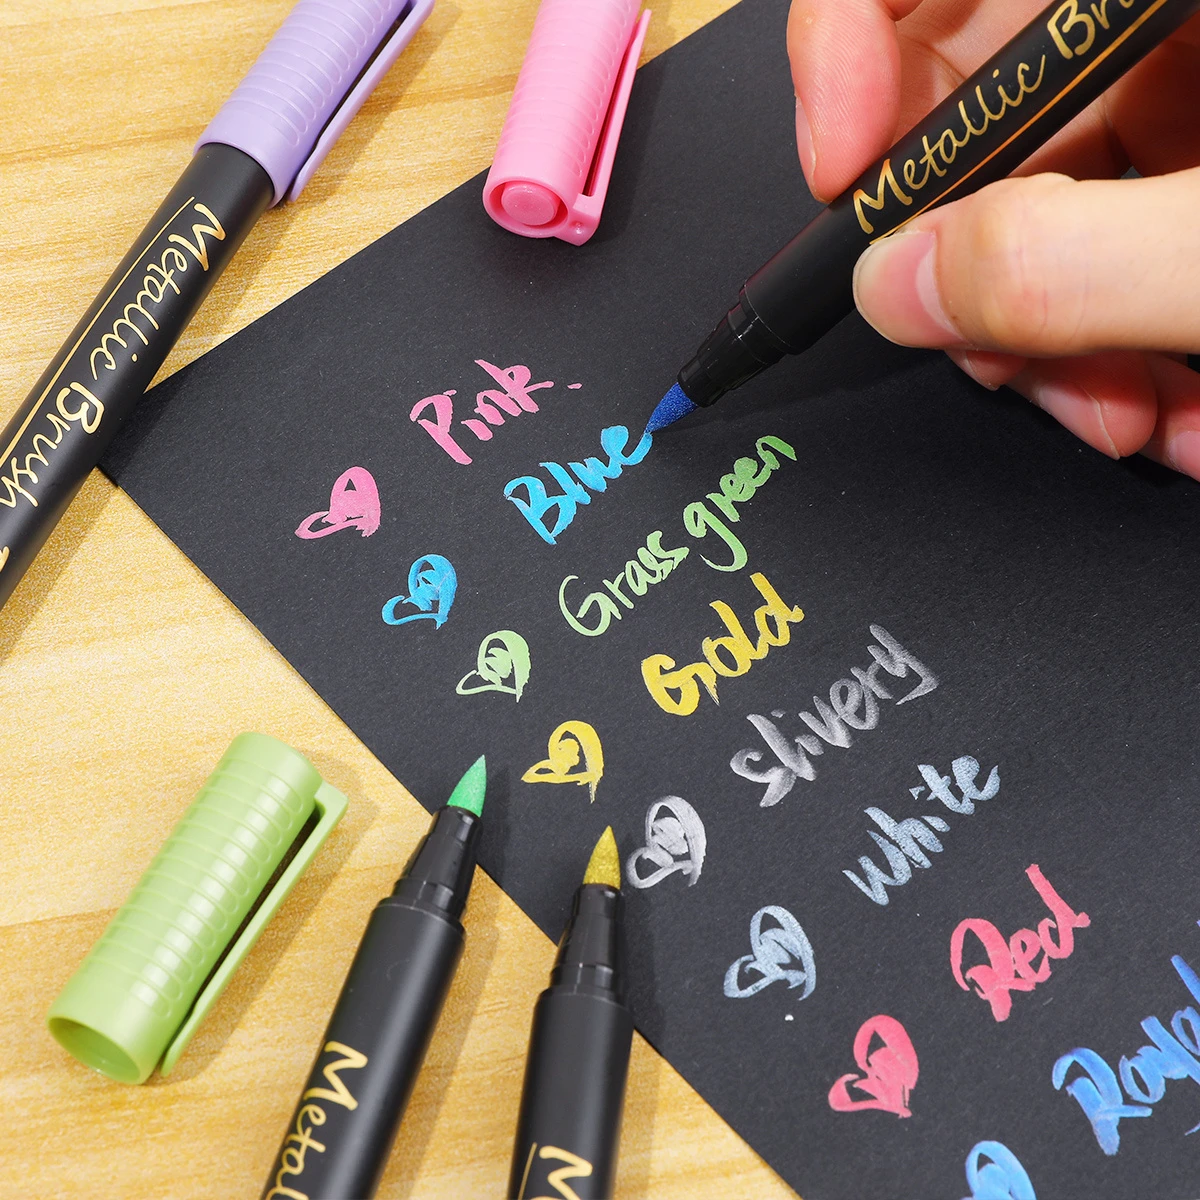 Metallic Brush
Metallic Br
Pink.
Blue
Grass green
Gold
slivery
white
Red
Royal
Metal
M